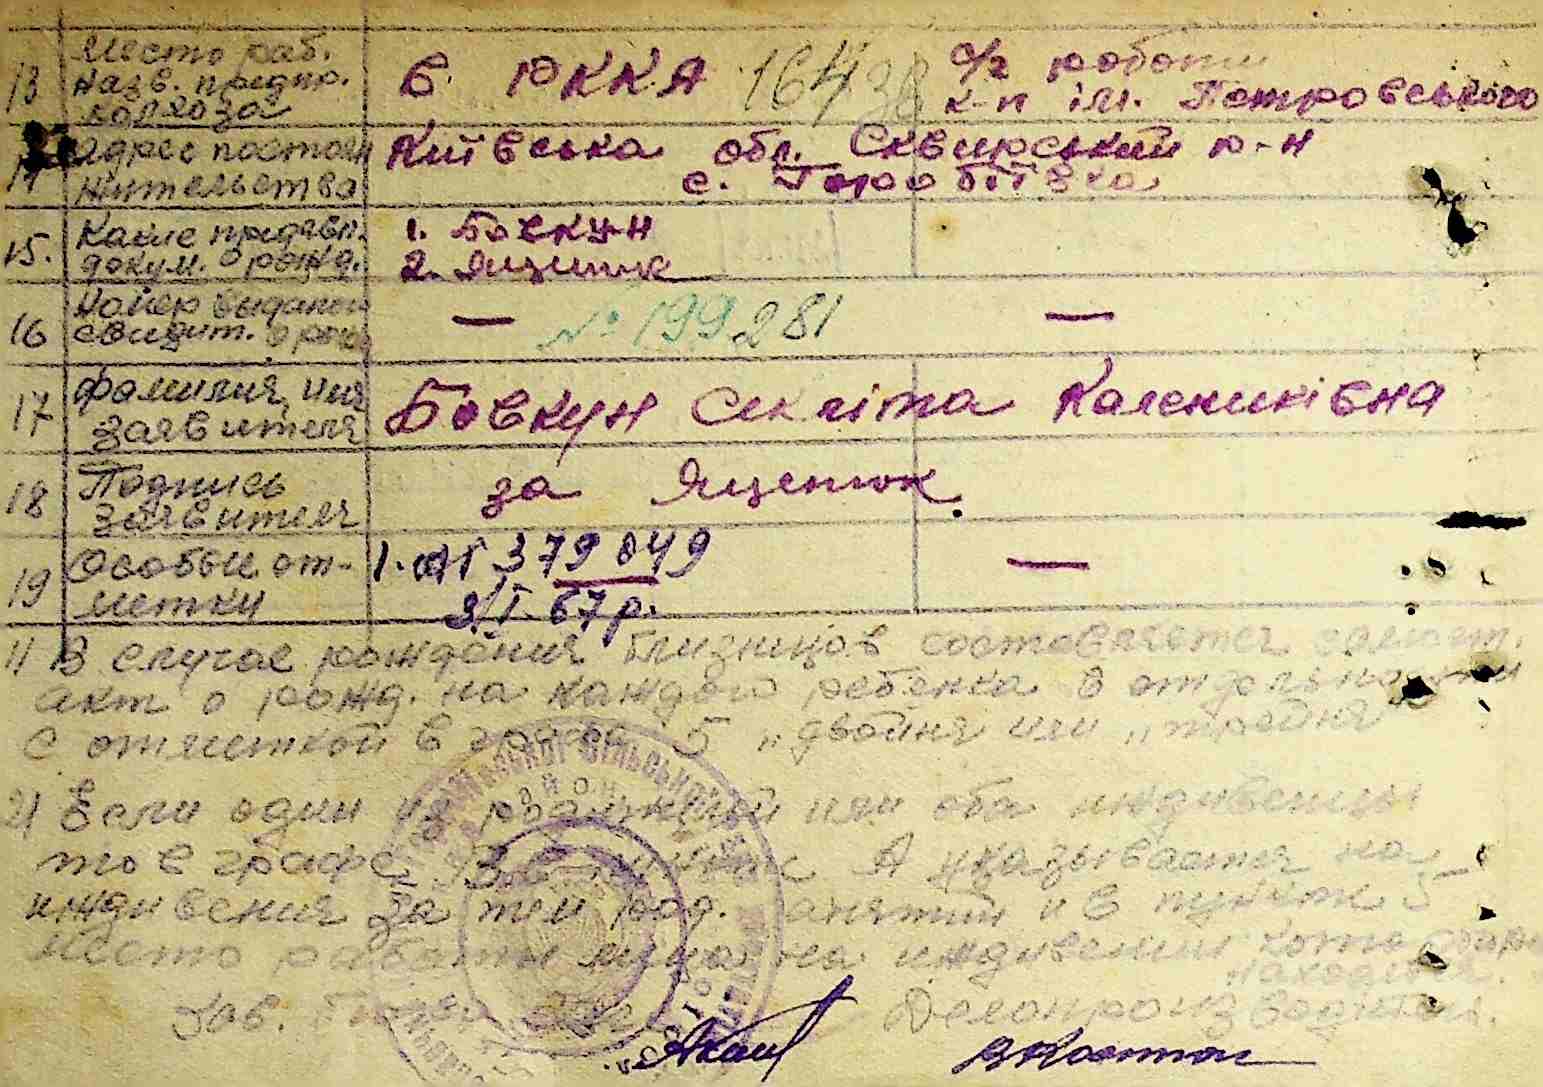 13 Место раб. назв. предпр. колхоза
В РККА 164 38 с/г роботи к-п ім. Петровського
14 Адрес постоян жительства
Київська обл. Сквирський р-н
с. Горобіївка
15. Какие предъявл. докум. о рожд.
1. Бовкун
2. Ященюк
16 Номер выданого свидит. о рожд
— № 199281 —
17 Фамилия, имя заявителя
Бовкун Секліта Каленниківна
18 Подпись заявителя
за Ященюк.
19 Особые отметки
1. 379 049 —
3/I 67 р.
1) В случае рождения близнецов составляется самост.
акт о рожд. на каждого ребенка в отдельности
с отметкой в графе 5 „двойня или „тройня
2) Если один из родителей или оба иждивенцы
то в графе 13 в пункте А указывается на
иждивении за тем род. занятий и в пункте 5
место работы лица на иждивении кото
находится.
Зав. Делопроизводитель.